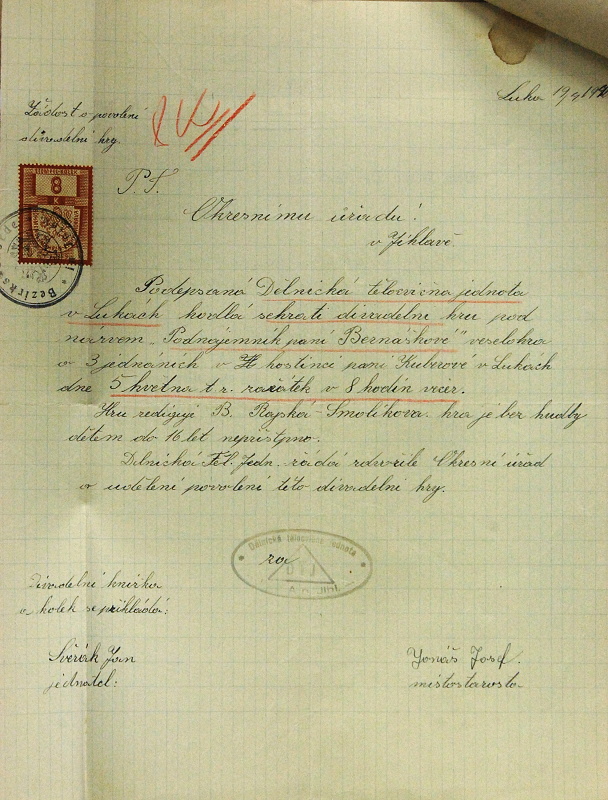 Luka 19/4 1940
Žádost o povolení
divadelní hry.
8
K
P. T.
Okresnímu úřadu!
v Jihlavě.
Podepsaná Dělnická tělocvičná jednota
v Lukách hodlá sehrati divadelní hru pod
názvem „Podnájemník paní Bernáškové" veselohra
o 3 jednáních v hostinci paní Kuberové v Lukách
dne 5 května t. r. začátek v 8 hodin večer.
Hru rediguje B. Rajská-Smolíkova hra je bez hudby
dětem do 16 let nepřístpno.
Dělnická Těl. Jedn. žádá zdvořile Okresní úřad
o udělení povolení této divadelní hry.
Dělnická tělocvičná jednota
za
DTJ
Divadelní knížka
a kolek se přikládá:
Svěrák Jan
jednatel:
Jonáš Josef.
místostarosta